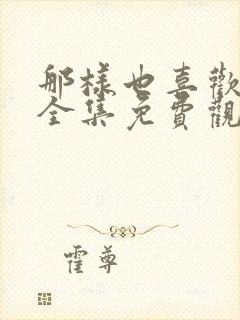 那樣也喜歡
全集免費觀
霍尊